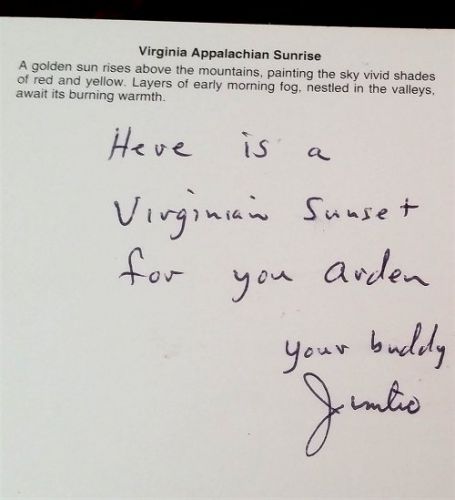 Virginia Appalachian Sunrise
A golden sun rises above the mountains, painting the sky vivid shades
of red and yellow. Layers of early morning fog, nestled in the valleys,
await its burning warmth.
Here is a
Virginian Sunset
for you arden
your buddy